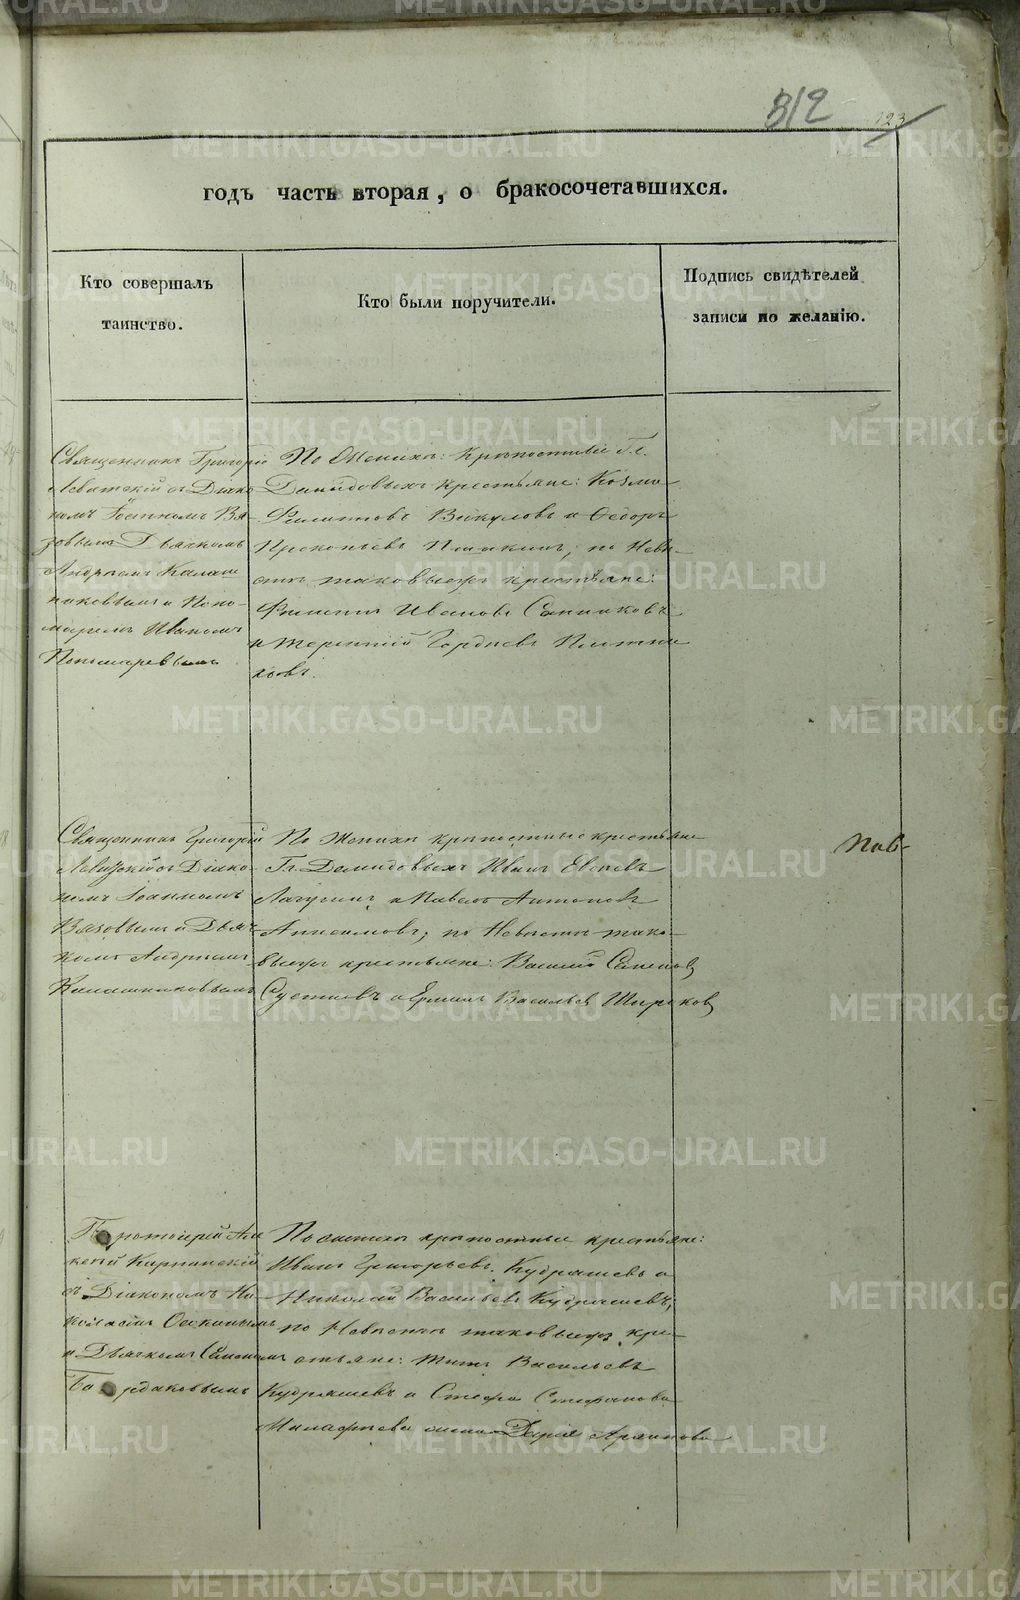 312
123
годъ часть вторая, о бракосочетавшихся.
Кто совершалъ
таинство.
Кто были поручители.
Подпись свидѣтелей
записи по желанію.
Священникъ Григорій
Левитскій съ Діако
номъ Іоанномъ Вя
зовымъ Дьячкомъ
Андреемъ Калаш
никовымъ и Поно
маремъ Иваномъ
Пономаревымъ
По Женихѣ: крѣпостные Гг.
Демидовыхъ крестьяне: Козма
Филиповъ Викуловъ и Ѳедоръ
Прокопьевъ по Невѣ-
стѣ таковыежъ крестьяне:
Филипъ Ивановъ Санниковъ
и Терентій Гордѣевъ Плотни
ковъ.
Священникъ Григорій
Левитскій съ Діако-
номъ Іоанномъ
Вязовымъ и Дьяч
комъ Андреемъ
Калашниковымъ
По Женихѣ крѣпостные крестьяне
Гг. Демидовыхъ Иванъ Евсѣевъ
и Павелъ Антоновъ
Анисимовъ, по Невѣстѣ тако-
выежъ крестьяне: Василій Семеновъ
и Ермилъ Васильевъ Ширяковъ
Пав-
Протоіерей Але
ксѣй Карпинскій
съ Діакономъ Ни-
колаемъ
и Дьячкомъ Семеномъ
Бардаковымъ
По женихѣ крѣпостные крестьяне:
Иванъ Григорьевъ Кудряшевъ и
Николай Васильевъ Кудряшевъ;
по Невѣстѣ таковыежъ кре-
стьяне: Титъ Васильевъ
Кудряшевъ и Стефанова
жена Дарія Архипова